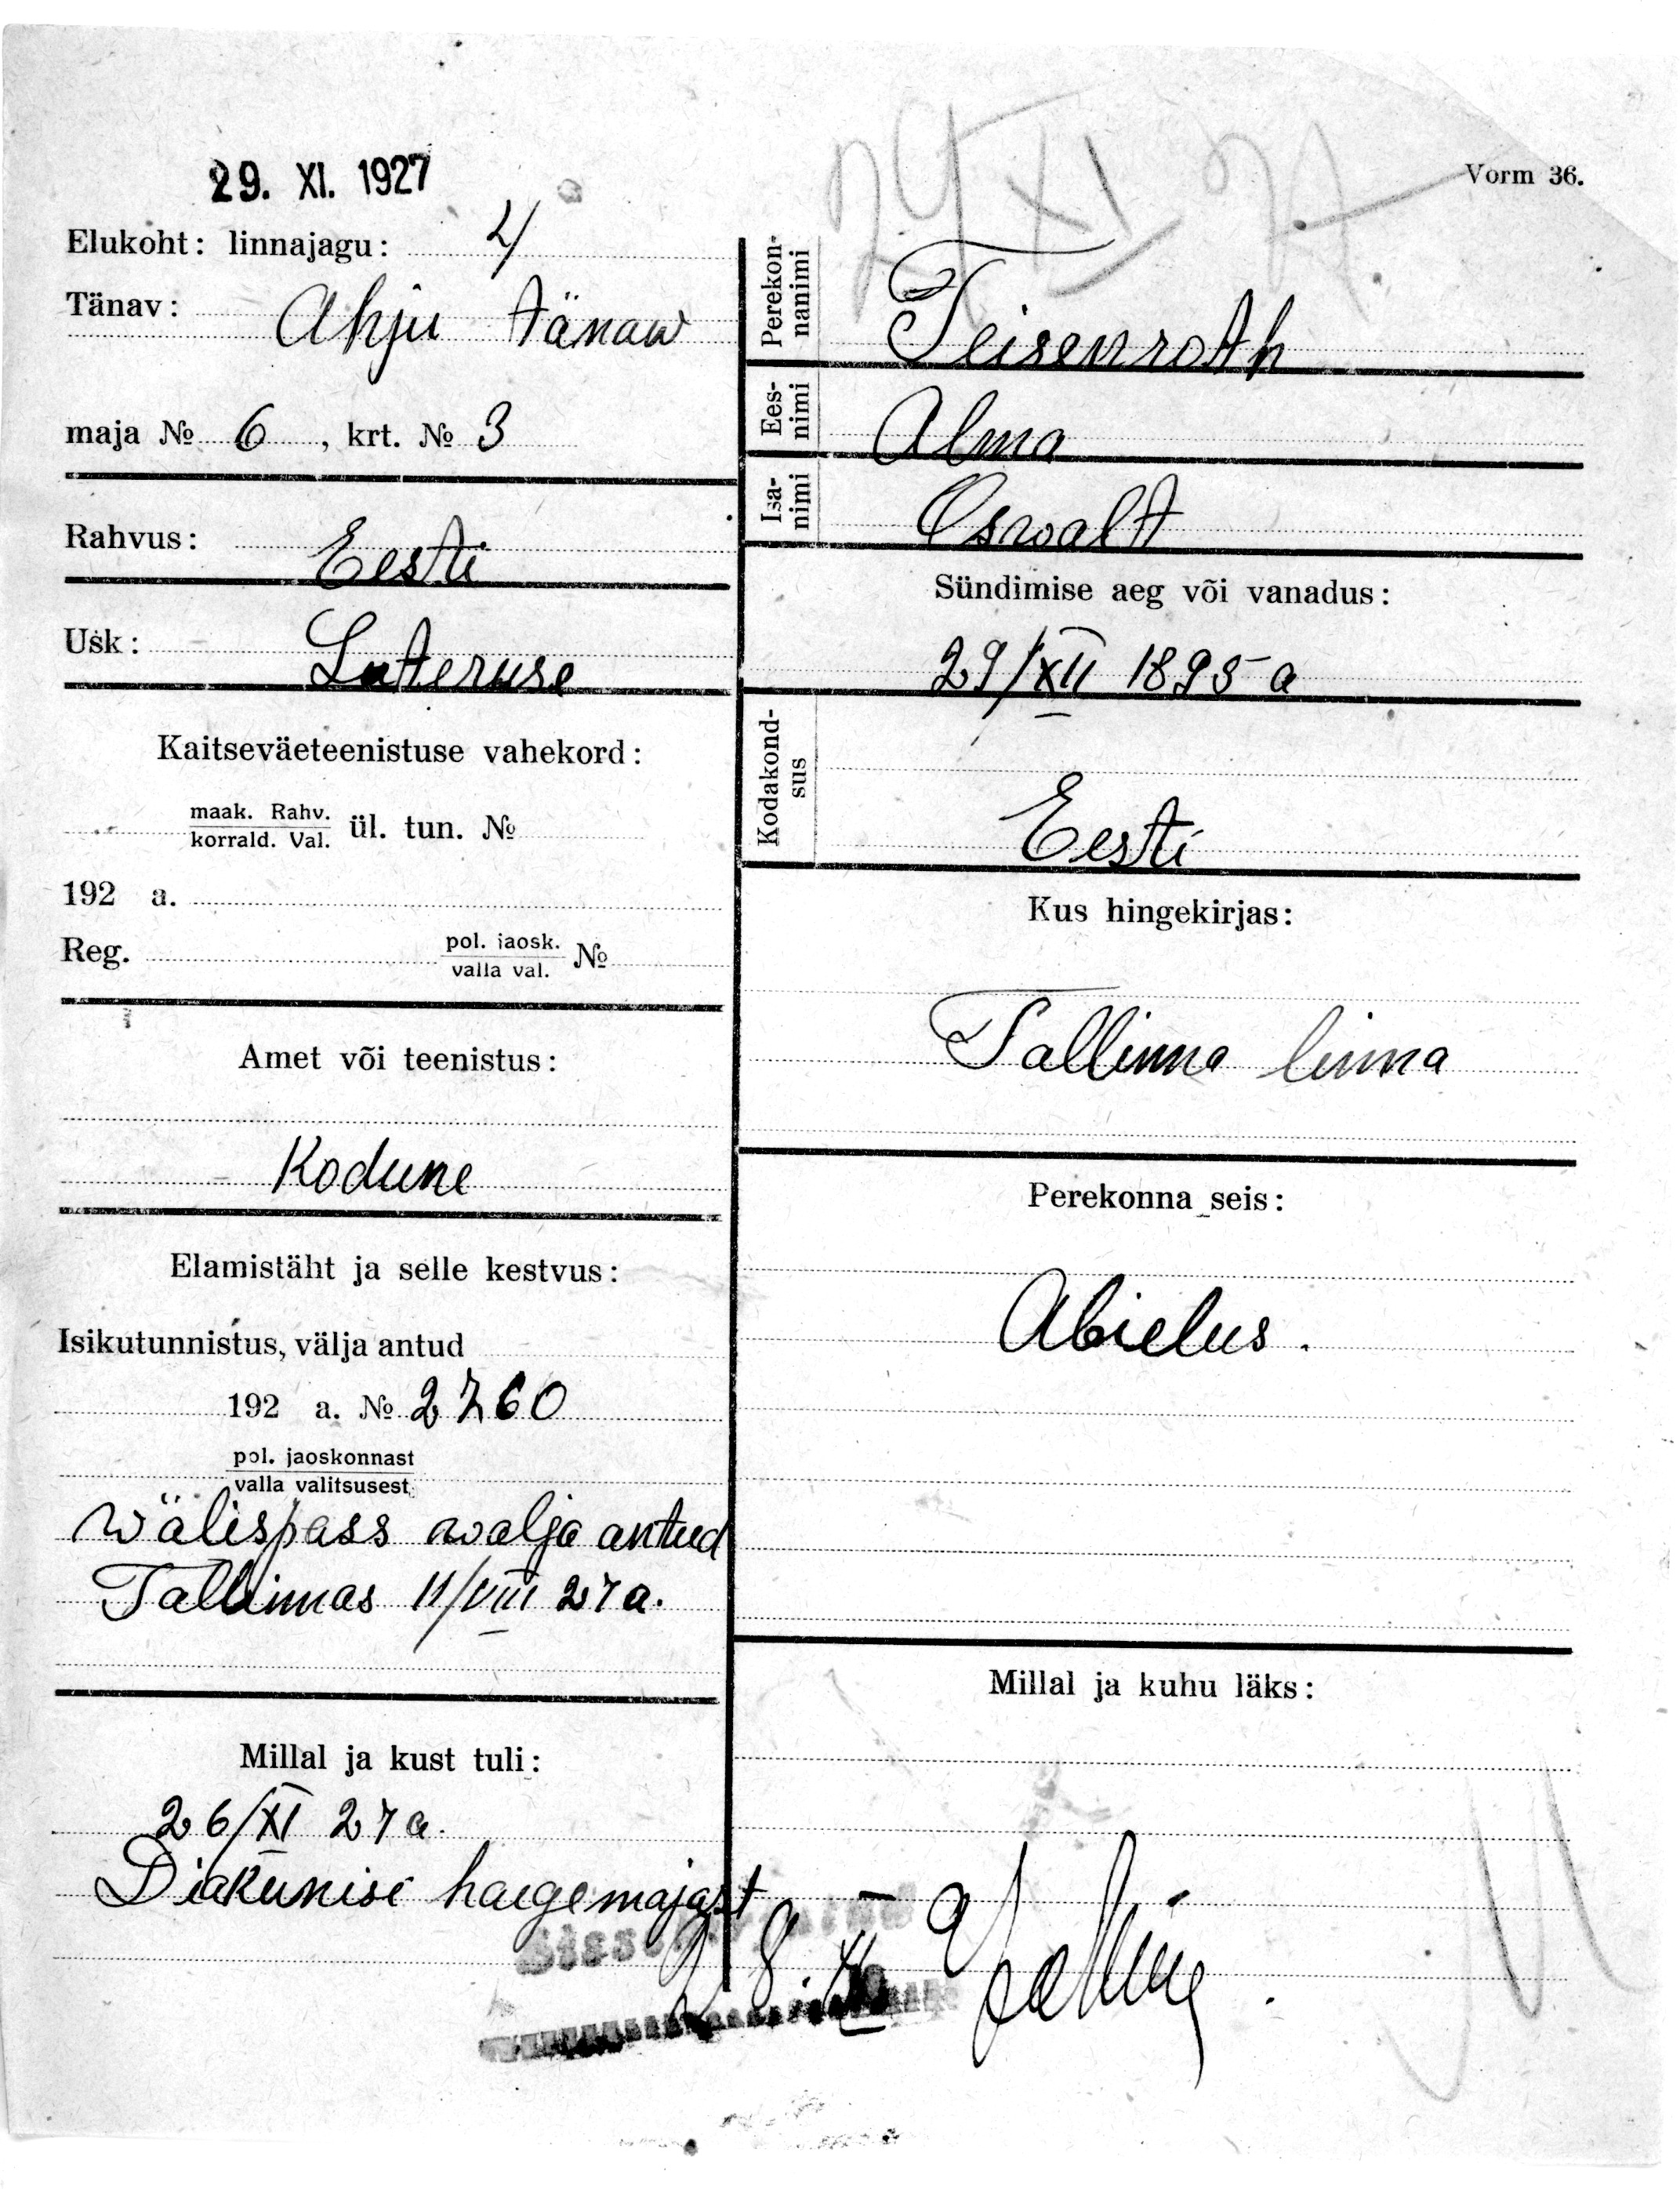 29. XI. 1927
Vorm 36.
Elukoht: linnajagu: 4
Tänav: Ahju tänaw
maja № 6, krt. № 3
Rahvus: Eesti
Usk: Luteruse
Kaitseväeteenistuse vahekord:
maak. Rahv.
korrald. Val. ül. tun. №
192 a.
Reg. pol. jaosk.
valla val. №
Amet või teenistus:
Kodune
Elamistäht ja selle kestvus:
Isikutunnistus, välja antud
192 a. № 2760
pol. jaoskonnast
valla valitsusest
Wälispass walja antud
Tallinnas 11/VIII 27 a.
Millal ja kust tuli:
26/XI 27 a.
Diakunisi haigemajast
Perekon-
nanimi
Teisenroth
Ees-
nimi
Alma
Isa-
nimi
Oswalt
Sündimise aeg või vanadus:
29/XII 1895 a
Kodakond-
sus
Eesti
Kus hingekirjas:
Tallinna linna
Perekonna seis:
Abielus.
Millal ja kuhu läks: